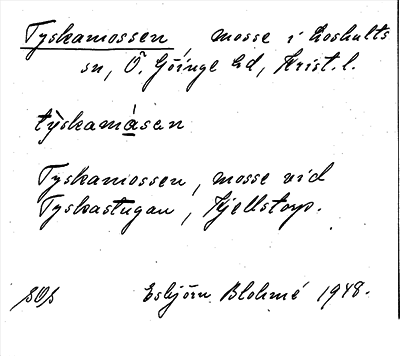 Tyskamossen, mosse i Loshults
sn, Ö. Göinge hd, Krist. l.
tỳskamåsen
Tyskamossen, mosse vid
Tyskastugan, Kjellstorp.
Esbjörn Blohmé 1948.